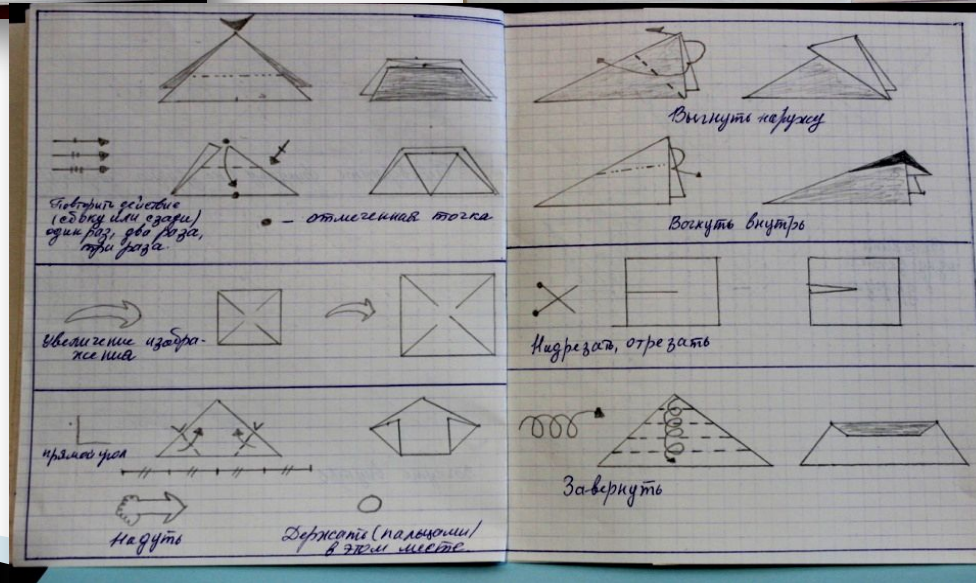 Повторить действие
(сбоку или сзади)
один раз, два раза,
три раза.
— отмеченная точка
Увеличение изобра-
жения
прямой угол
Надуть
Держать (пальцами)
в этом месте.
Выгнуть наружу
Вогнуть внутрь
Надрезать, отрезать
Завернуть